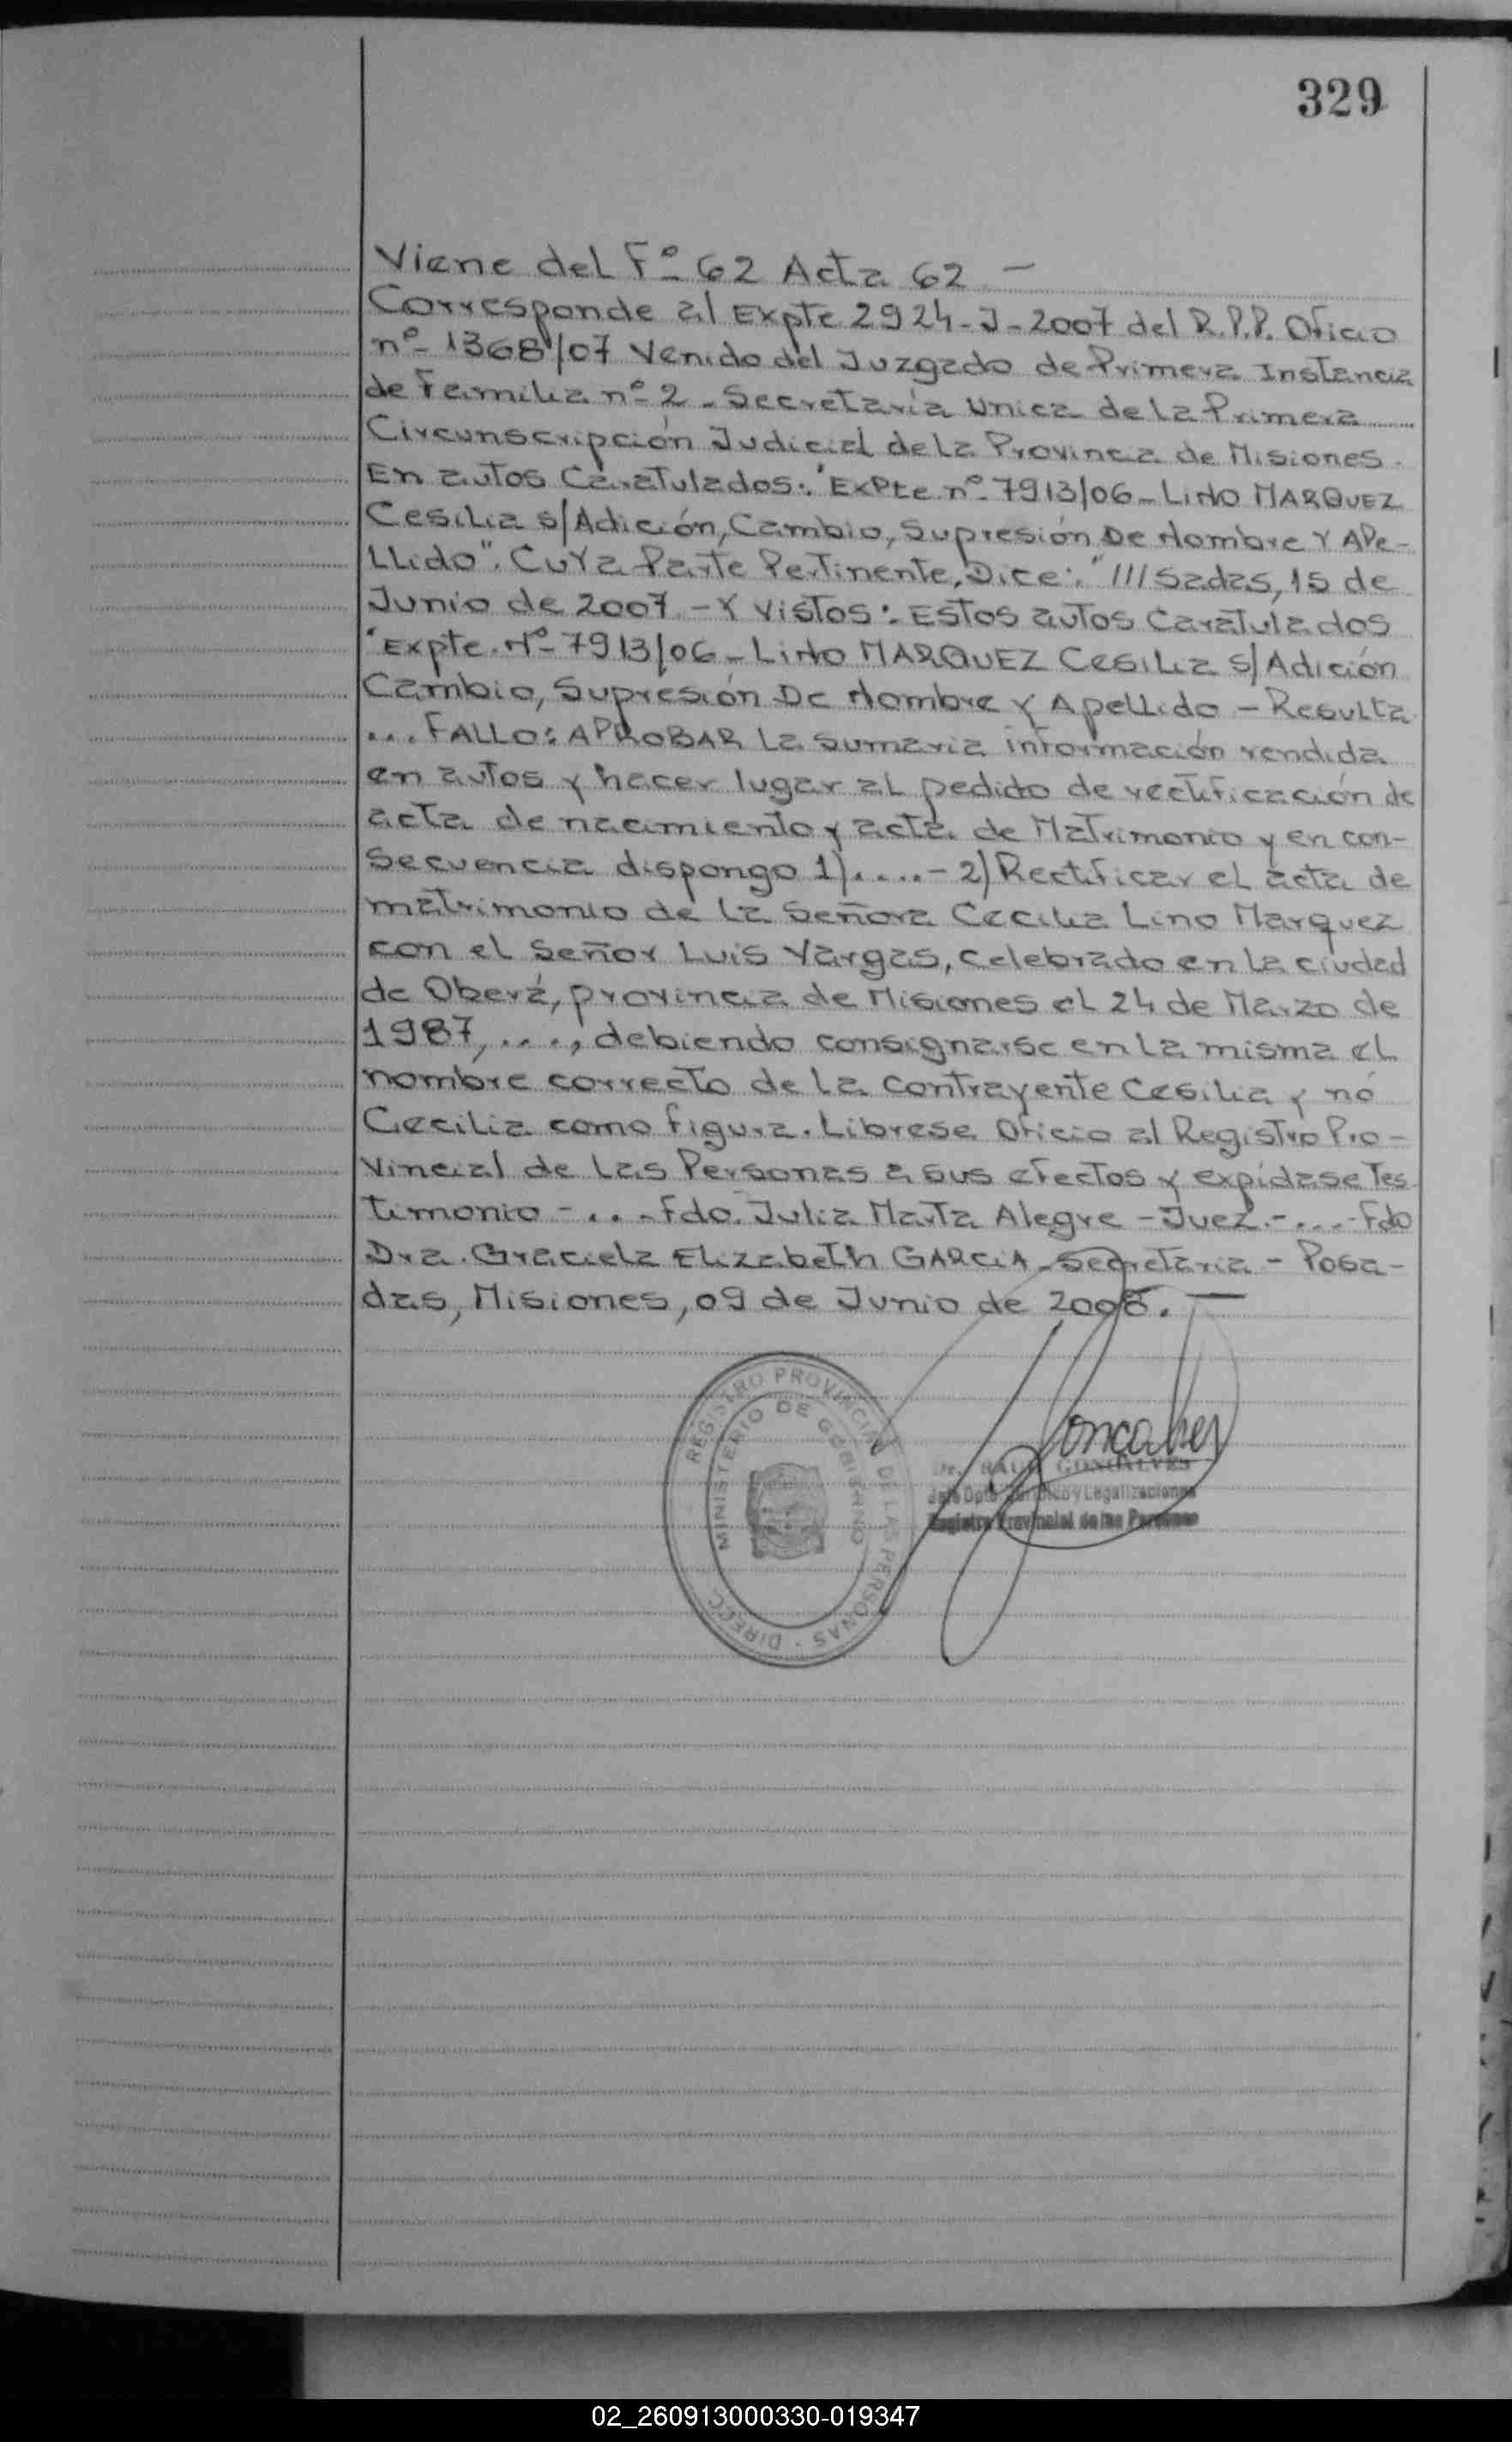 329
Viene del Fº 62 Acta 62 —
Corresponde al Expte 2924-J-2007 del R.P.P. Oficio
nº 1368/07 Venido del Juzgado de Primera Instancia
de Familia nº 2 - Secretaría Unica de la Primera
Circunscripción Judicial de la Provincia de Misiones.
En autos Caratulados: "Expte nº 7913/06 - Lino MARQUEZ
Cesilia s/Adición, Cambio, Supresión De Nombre Y Ape-
llido". Cuya Parte Pertinente, Dice: "///sadas, 15 de
Junio de 2007 - Y Vistos: Estos autos Caratulados
"Expte. Nº 7913/06 - Lino MARQUEZ Cesilia s/Adición
Cambio, Supresión De Nombre y Apellido - Resulta
... FALLO: APROBAR la sumaria información rendida
en autos y hacer lugar al pedido de rectificación de
acta de nacimiento y acta de Matrimonio y en con-
secuencia dispongo 1).....- 2) Rectificar el acta de
matrimonio de la Señora Cecilia Lino Marquez
con el Señor Luis Vargas, celebrado en la ciudad
de Oberá, provincia de Misiones el 24 de Marzo de
1987, ...., debiendo consignarse en la misma el
nombre correcto de la contrayente Cesilia y no
Cecilia como figura. Librese Oficio al Registro Pro-
vincial de las Personas a sus efectos y expídase Tes
timonio - ... - Fdo. Julia Marta Alegre - Juez.- ... - Fdo
Dra. Graciela Elizabeth GARCIA - Secretaria - Posa-
das, Misiones, 09 de Junio de 2008. —
REGISTRO PROVINCIAL DE LAS PERSONAS - DIRECC
MINISTERIO DE GOBIERNO
Goncalves
Dr. RAUL GONCALVES
Jefe Dpto Jurídico y Legalizaciones
Registro Provincial de las Personas
02_260913000330-019347